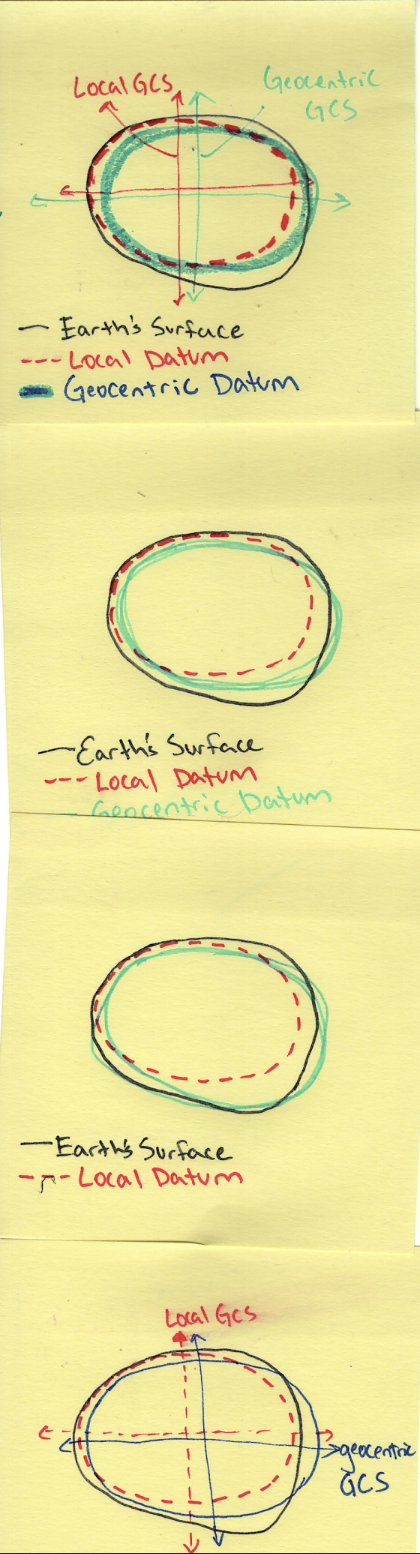 Local GCS
Geocentric
GCS
Earth's Surface
Local Datum
Geocentric Datum
Earth's Surface
Local Datum
Geocentric Datum
Earth's Surface
Local Datum
Local GCS
geocentric
GCS